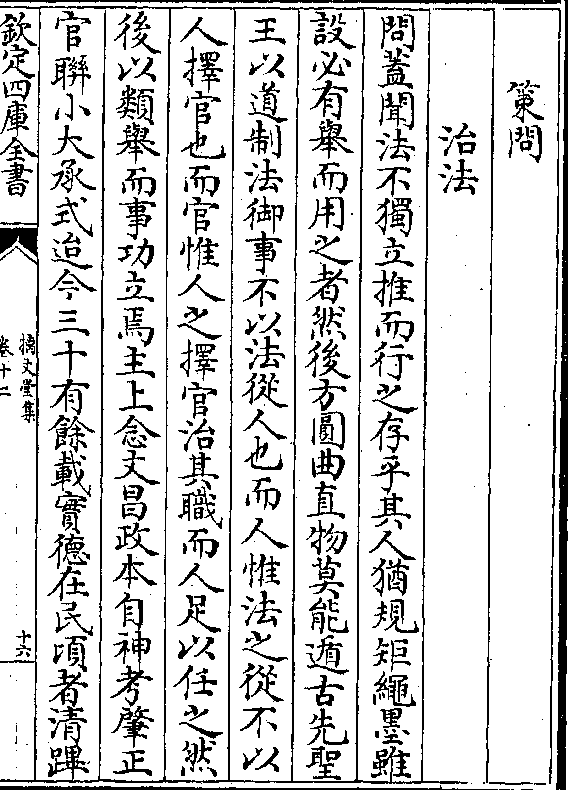 策問
治法
問蓋聞法不獨立推而行之存乎其人猶規矩繩墨雖
設必有舉而用之者然後方圓曲直物莫能遁古先聖
王以道制法御事不以法從人也而人惟法之從不以
人擇官也而官惟人之擇官治其職而人足以任之然
後以類舉而事功立焉主上念文昌政本自神考肇正
官聯小大承式迨今三十有餘載實德在民頃者清蹕
欽定四庫全書
摛文堂集
卷十二
十六